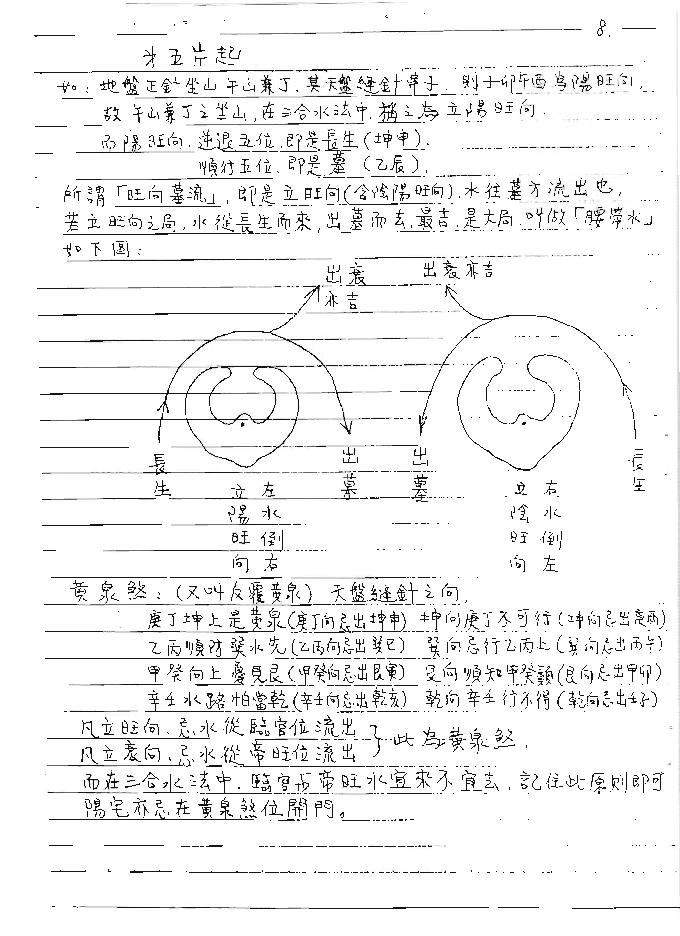 8.
才五片起
如：地盤正針坐山午山兼丁，其天盤縫針帝子，則子卯午酉為陽旺向，
故午山兼丁之坐山，在三合水法中，稱之為立陽旺向．
而陽旺向，逆退五位，即是長生(坤申)．
順行五位，即是墓（乙辰）．
所謂「旺向墓流」，即是立旺向(含陰陽旺向)，水往墓方流出也，
若立旺向之局，水從長生而來，出墓而去，最吉，是大局，叫做「腰帶水」
如下圖：
出衰亦吉
出衰亦吉
長生
出墓
出墓
長生
立陽旺向 左水倒右
立陰旺向 右水倒左
黃泉煞：(又叫反覆黃泉) 天盤縫針之向，
庚丁坤上是黃泉(庚丁向忌出坤申) 坤向庚丁不可行(坤向忌出庚酉)
乙丙須防巽水先(乙丙向忌出巽巳) 巽向忌行乙丙上(巽向忌出丙午)
甲癸向上憂見艮(甲癸向忌出艮寅) 艮向須知甲癸嫌(艮向忌出甲卯)
辛壬水路怕當乾(辛壬向忌出乾亥) 乾向辛壬行不得(乾向忌出壬子)
凡立旺向，忌水從臨官位流出
凡立衰向，忌水從帝旺位流出 } 此為黃泉煞．
而在三合水法中，臨官与帝旺水宜來不宜去，記住此原則即可
陽宅亦忌在黃泉煞位開門。